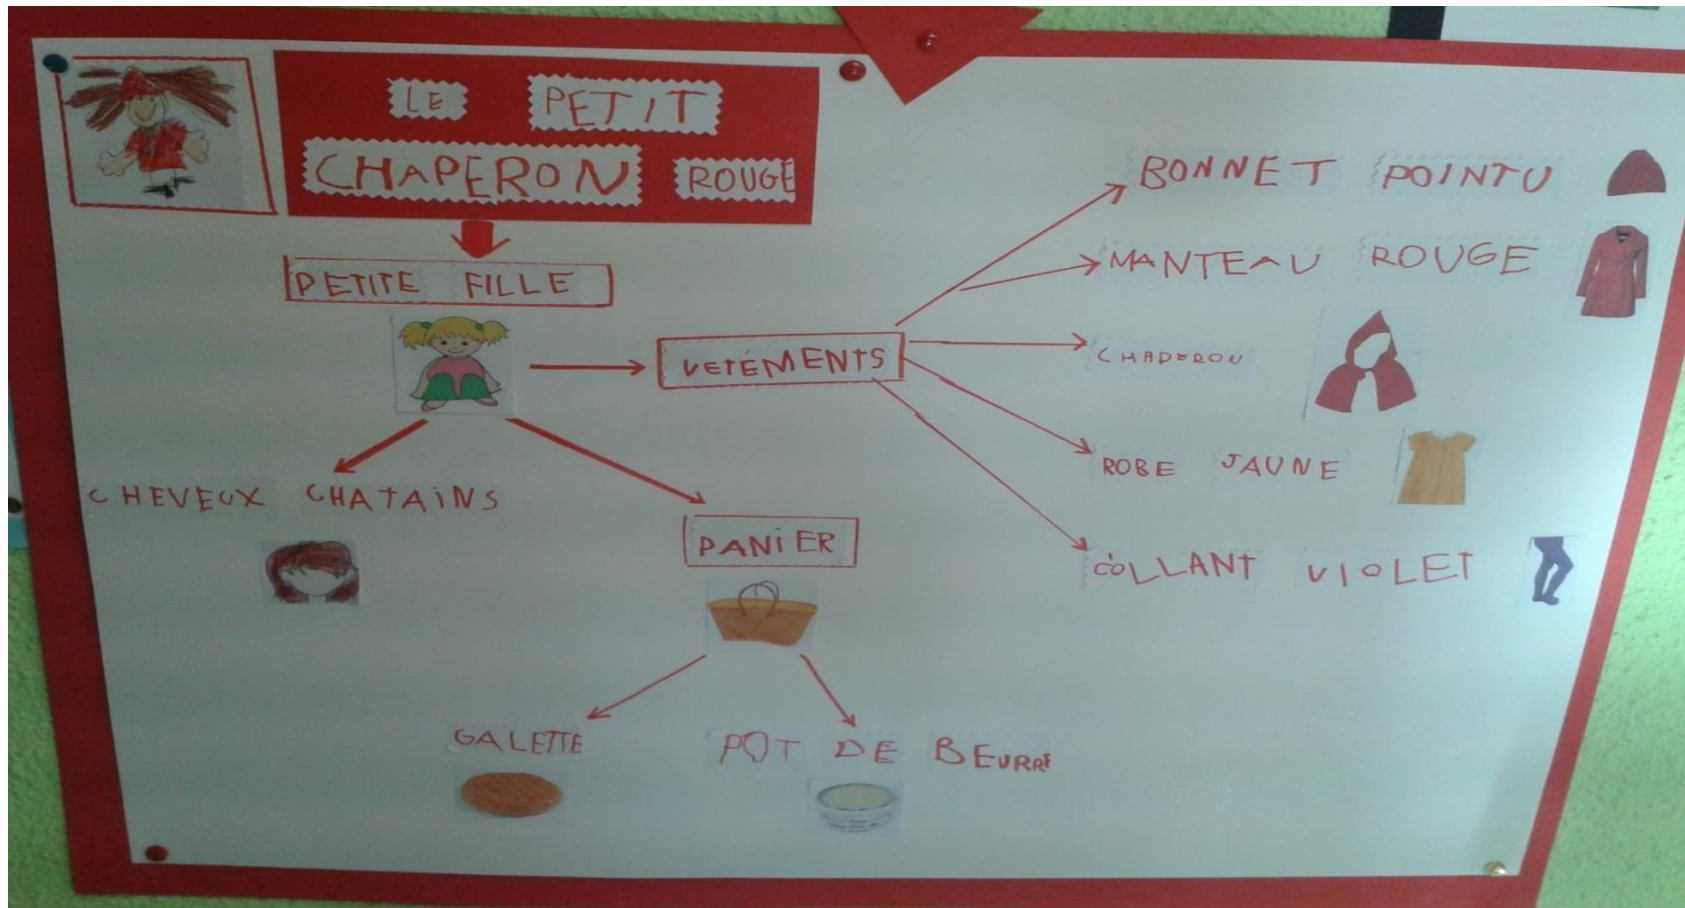 LE PETIT
CHAPERON ROUGE
PETITE FILLE
VETÉMENTS
BONNET POINTU
MANTEAU ROUGE
CHAPERON
ROBE JAUNE
COLLANT VIOLET
CHEVEUX CHATAINS
PANIER
GALETTE
POT DE BEURRE